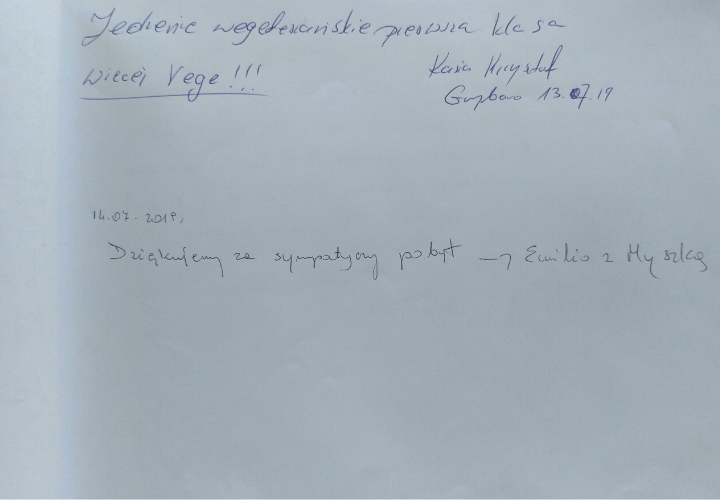 Jedzenie wegetariańskie pierwsza klasa
Więcej Vege!!!
Kasia Krzysztof
13.07.19
14.07.2019,
Dziękujemy za sympatyczny pobyt → Emilia z Myszką